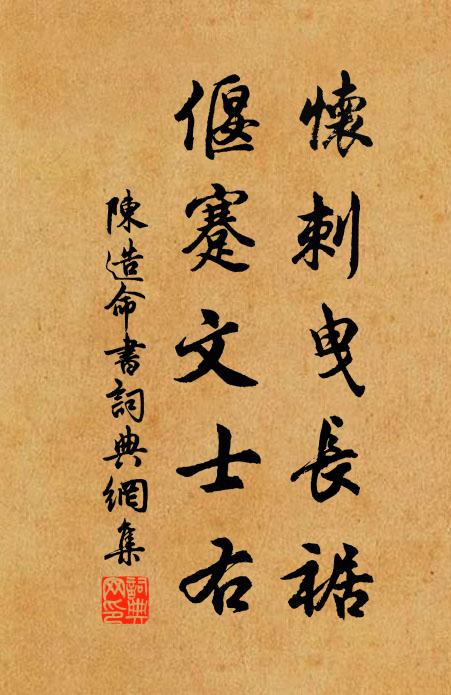 懷刺曳長裾
偃蹇文士右
陳造命書詞典網集
詞典網印